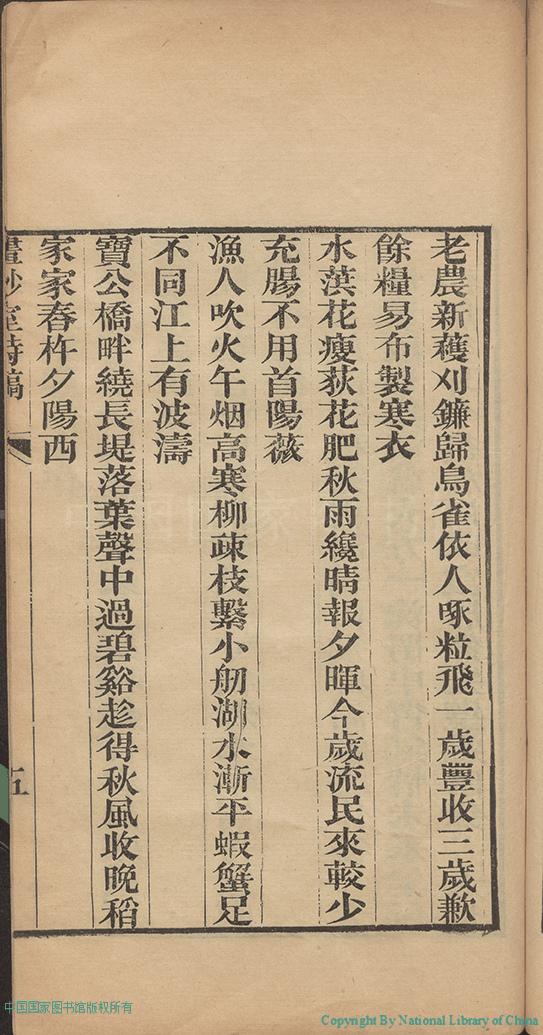 老農新穫刈鐮歸鳥雀依人啄粒飛一歲豐收三歲歉
餘糧易布製寒衣
水葓花瘦荻花肥秋雨纔晴報夕暉今歲流民來較少
充腸不用首陽薇
漁人吹火午烟高寒柳疎枝繫小舠湖水漸平蝦蟹足
不同江上有波濤
寶公橋畔繞長堤落葉聲中過碧谿趁得秋風收晚稻
家家舂杵夕陽西
室詩稿
五
中国国家图书馆版权所有
Copyright By National Library of China